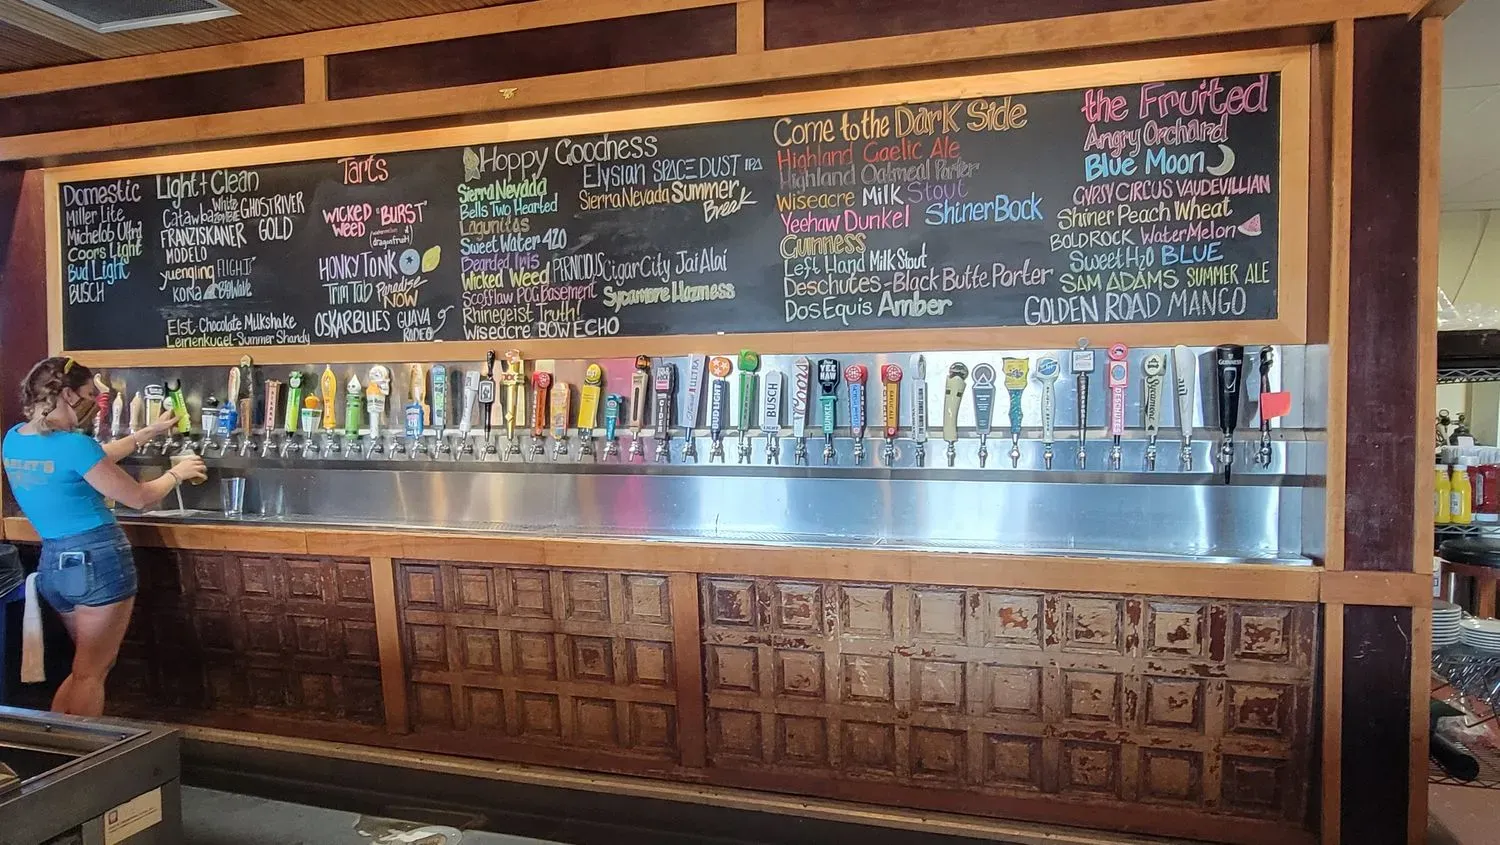 Domestic
Miller Lite
Michelob Ultra
Coors Light
Bud Light
BUSCH
Light + Clean
Catawba White Zombie GHOSTRIVER
FRANZISKANER GOLD
MODELO
yuengling FLIGHT
Kona Big Wave
E1st. Chocolate Milkshake
Leinenkugel-Summer Shandy
Tarts
WICKED WEED "BURST"
dragonfruit
HONKY TONK
Trim Tab Paradise NOW
OSKAR BLUES GUAVA RODEO
Hoppy Goodness
Sierra Nevada
Bells Two Hearted
Lagunitas
Sweet Water 420
Bearded Iris
Wicked Weed PERNICIOUS
Scofflaw POG Basement
Rhinegeist Truth!
Wiseacre BOW ECHO
Elysian SPACE DUST IPA
Sierra Nevada Summer Break
Cigar City Jai Alai
Sycamore Haziness
Come to the Dark Side
Highland Gaelic Ale
Highland Oatmeal Porter
Wiseacre Milk Stout
Yeehaw Dunkel ShinerBock
Guinness
Left Hand Milk Stout
Deschutes-Black Butte Porter
Dos Equis Amber
the Fruited
Angry Orchard
Blue Moon
GYPSY CIRCUS VAUDEVILLIAN
Shiner Peach Wheat
BOLDROCK WaterMelon
Sweet H2O BLUE
SAM ADAMS SUMMER ALE
GOLDEN ROAD MANGO
ULTRA
BUD LIGHT
CIDER
BUSCH
LIGHT
YEE HAW
DUNKEL
DESCHUTES
GUINNESS